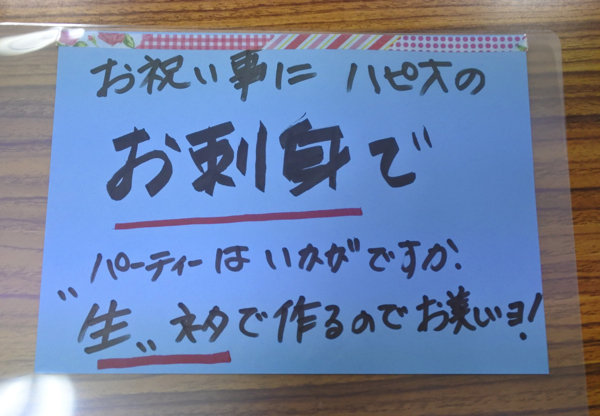 お祝い事に ハピオの
お刺身で
パーティーは いかがですか.
〝生〟ネタで作るのでお美いヨ!